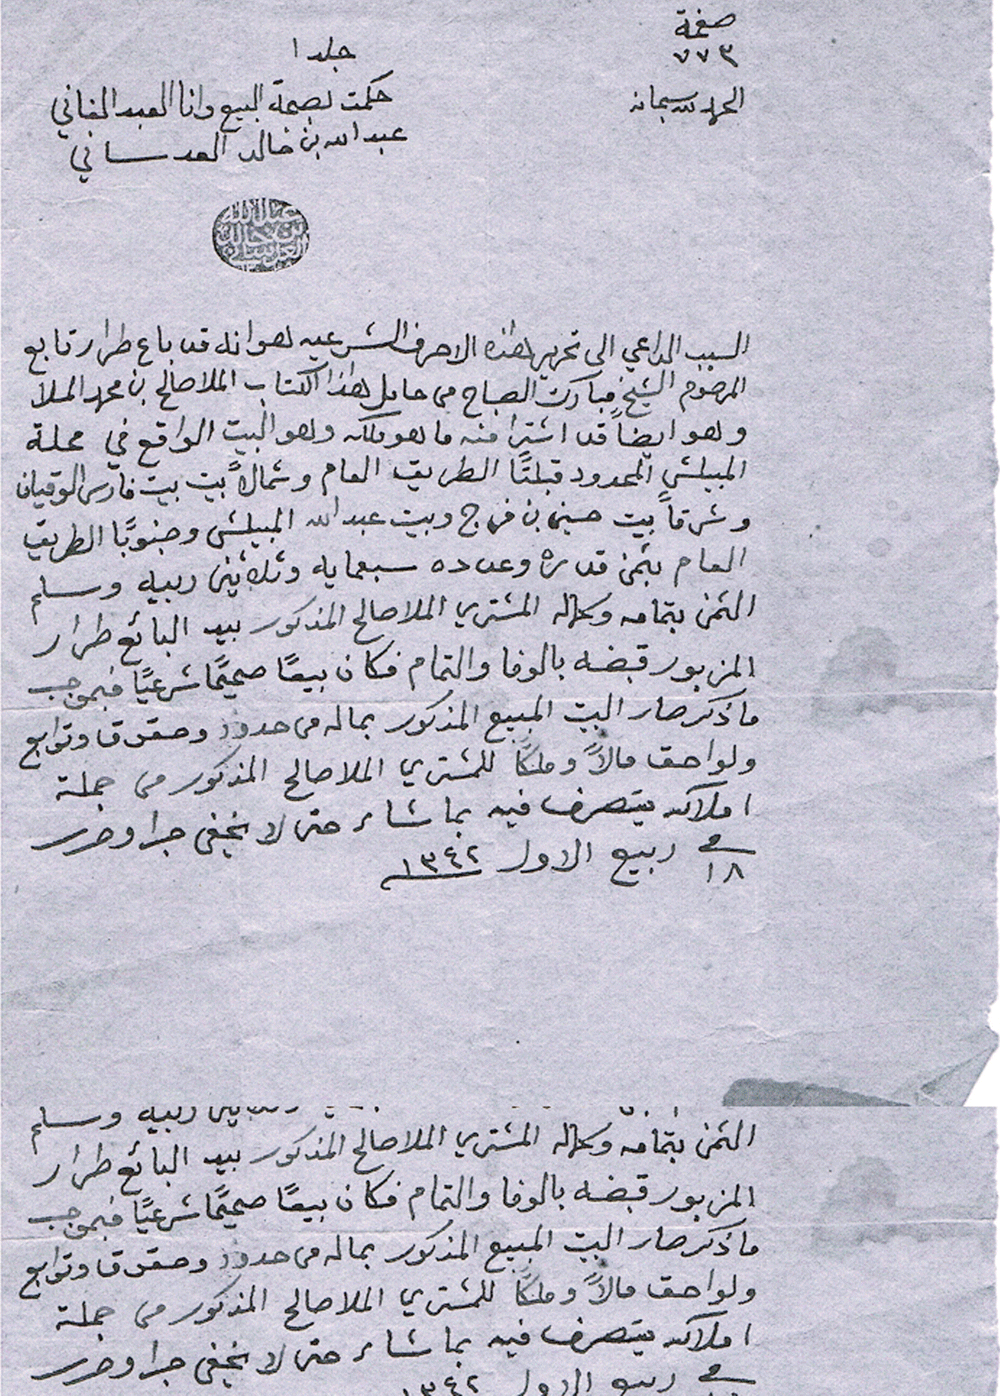 صفحة
٧٧٣
الحمد لله سبحانه
جلد ١
حكمت بصحة البيع وانا العبد الفاني
عبدالله بن خالد العدساني
عبدالله
بن خالد
العدساني
السبب الداعي الى تحرير هذه الاحرف الشرعيه هو انه قد باع طرار تابع
المرحوم الشيخ مبارك الصباح من حامل هذا الكتاب الملا صالح بن محمد الملا
وهو ايضاً قد اشترا منه ما هو ملكه وهو البيت الواقع في محلة
المبيلش المحدود قبلتًا الطريق العام وشمالاً بيت بيت فارس الوقيان
وشرقاً بيت حسين بن فرج وبيت عبدالله المبيلش وجنوبًا الطريق
العام بثمن قدره وعدده سبعمايه وثلاثين ربيه وسلم
الثمن بتمامه وكماله المشتري الملا صالح المذكور بيد البائع طرار
المزبور قبضه بالوفا والتمام فكان بيعًا صحيحًا شرعيًا فبموجب
ما ذكر صار البيت المبيع المذكور بماله من حدود وحقوق وتوابع
ولواحق مالاً وملكًا للمشتري الملا صالح المذكور من جملة
املاكه يتصرف فيه بما شاء حتى لا يخفى جرا وحرر
في ١٨ ربيع الاول ١٣٤٢
وثلاثين ربيه وسلم
الثمن بتمامه وكماله المشتري الملا صالح المذكور بيد البائع طرار
المزبور قبضه بالوفا والتمام فكان بيعًا صحيحًا شرعيًا فبموجب
ما ذكر صار البيت المبيع المذكور بماله من حدود وحقوق وتوابع
ولواحق مالاً وملكًا للمشتري الملا صالح المذكور من جملة
املاكه يتصرف فيه بما شاء حتى لا يخفى جرا وحرر
في ربيع الاول ١٣٤٢